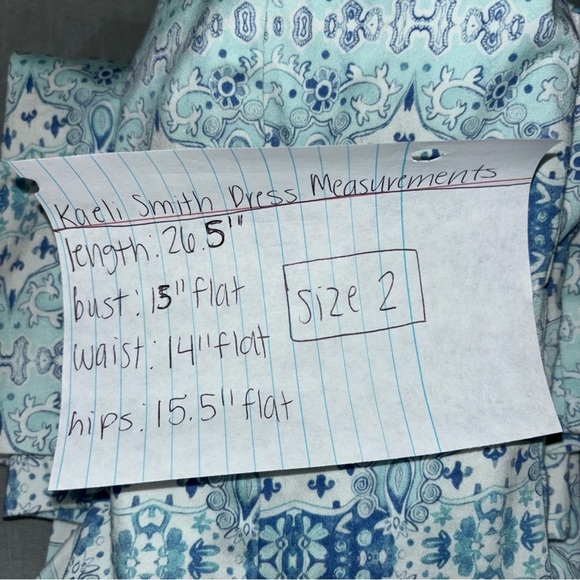 Kaeli Smith Dress Measurements
length: 26.5"
bust: 15" flat
size 2
waist: 14" flat
hips: 15.5" flat